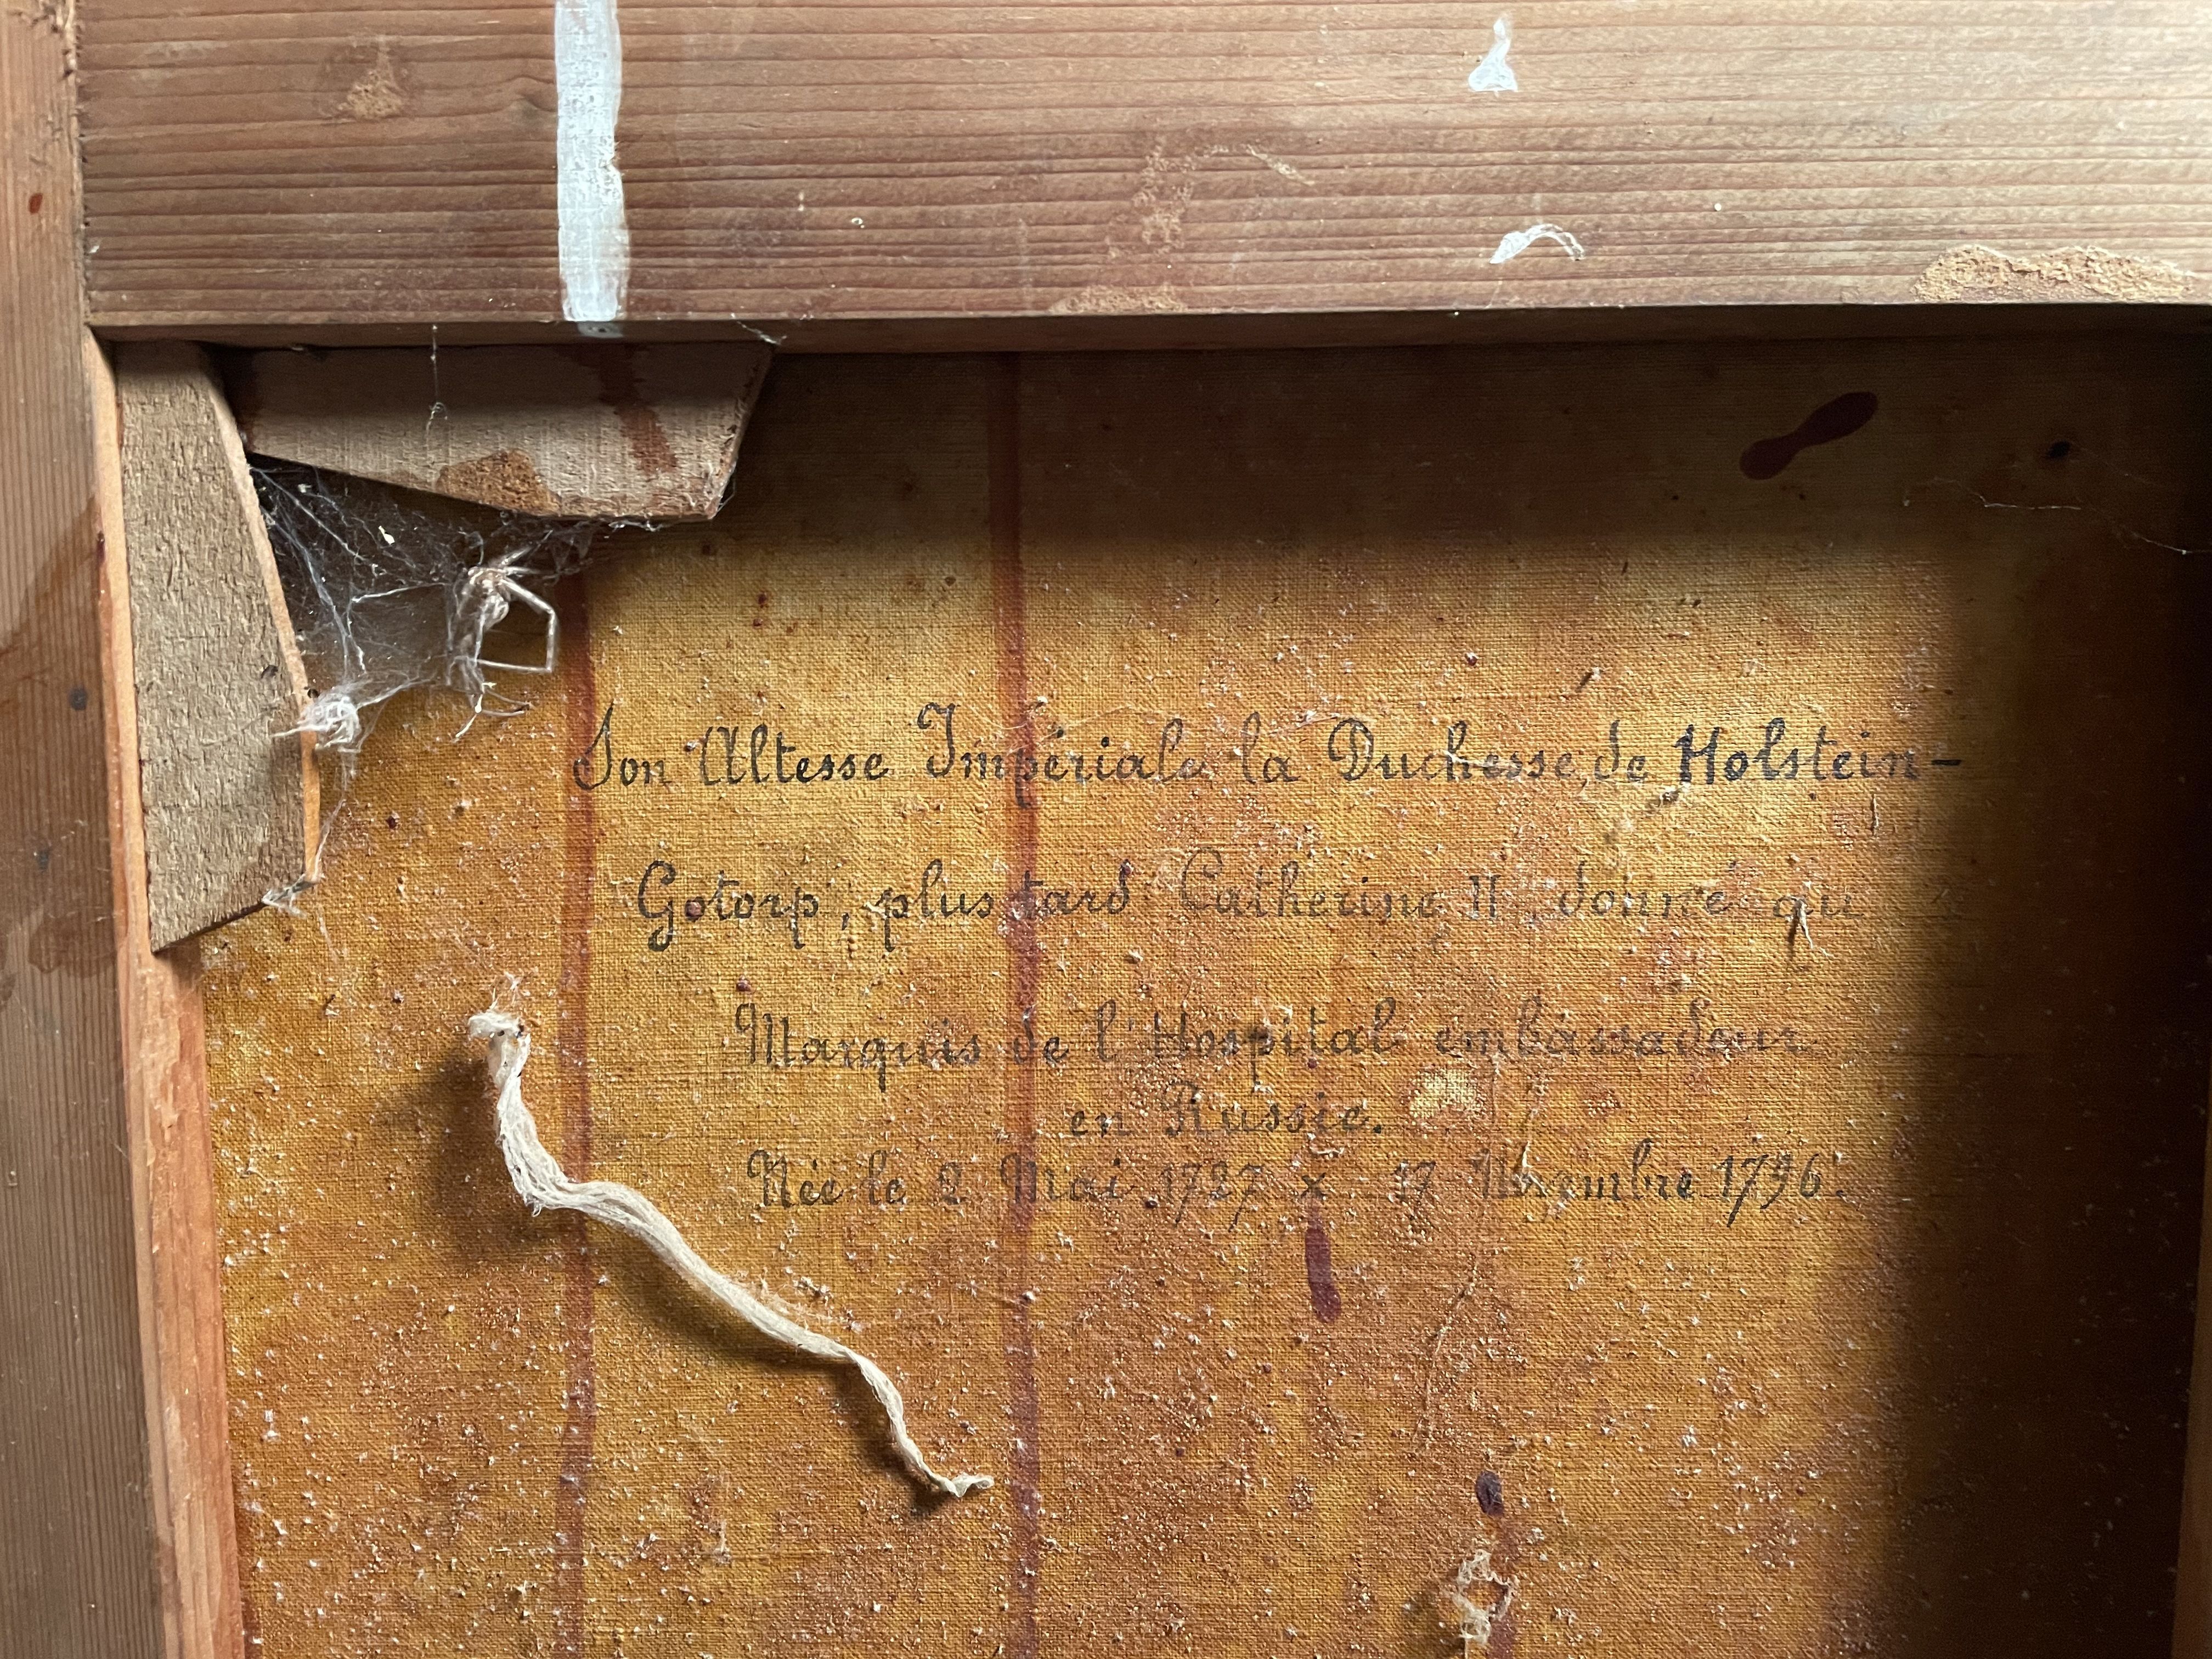 Son Altesse Impériale la Duchesse de Holstein-
Gotorp, plus tard Catherine II donné au
Marquis de l'Hospital embassadeur
en Russie.
Née le 2 Mai 1727 x 17 Novembre 1796.